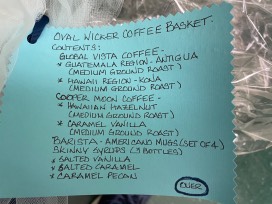 OVAL WICKER COFFEE BASKET.
CONTENTS:
GLOBAL VISTA COFFEE -
* GUATEMALA REGION - ANTIGUA
(MEDIUM GROUND ROAST)
* HAWAII REGION - KONA
(MEDIUM GROUND ROAST)
COOPER MOON COFFEE -
* HAWAIIAN HAZELNUT
(MEDIUM GROUND ROAST)
* CARAMEL VANILLA
(MEDIUM GROUND ROAST)
BARISTA - AMERICANO MUGS (SET OF 4)
SKINNY SYRUPS (3 BOTTLES)
* SALTED VANILLA
* SALTED CARAMEL
* CARAMEL PECAN
OVER